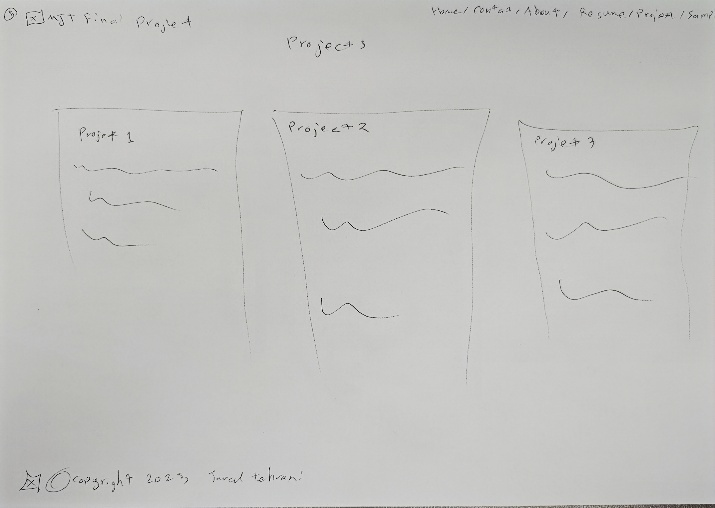 ③ MJT Final Project
Home/Contact/About/ Resume/Project/Samp
Projects
Projet 1
Project 2
Projet 3
© Copyright 2023, Tehrani